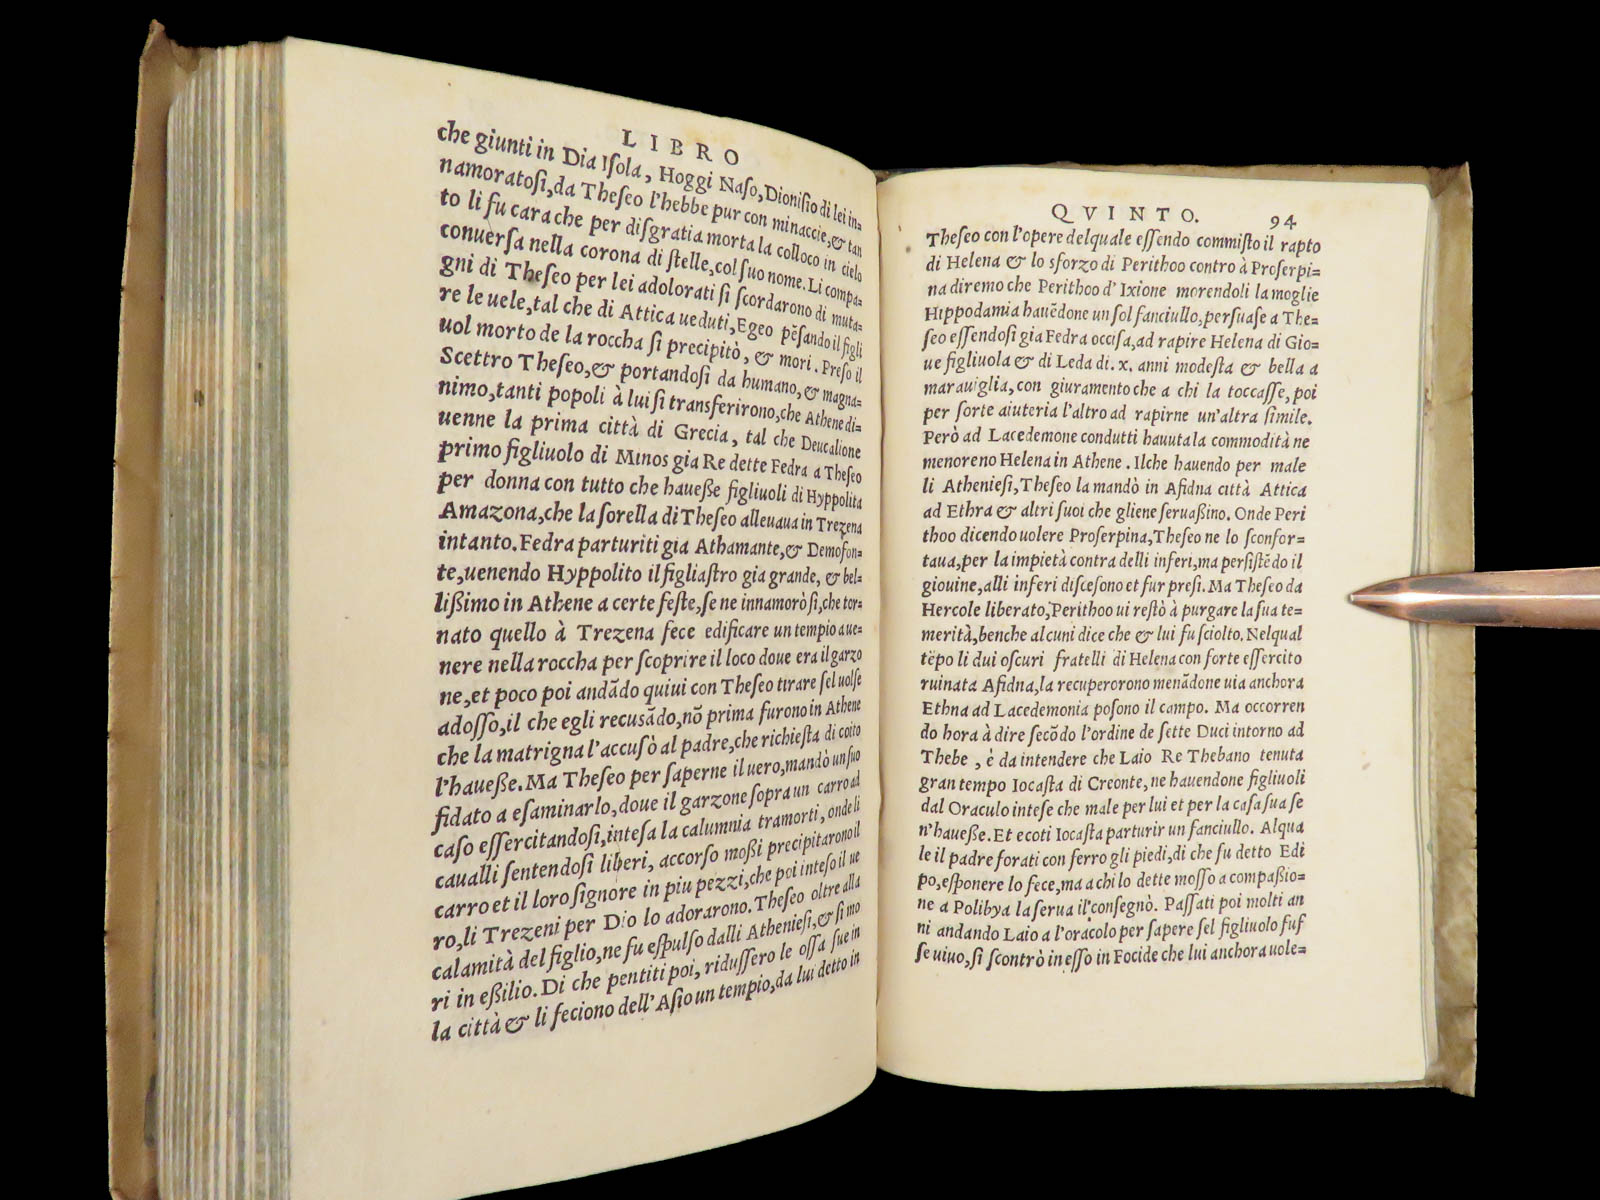 LIBRO
che giunti in Dia Iſola, Hoggi Naſo, Dioniſio di lei in=
namoratoſi, da Theſeo l'hebbe pur con minaccie, & tan
to li fu cara che per diſgratia morta la colloco in cielo
conuerſa nella corona di ſtelle, col ſuo nome. Li compa=
gni di Theſeo per lei adolorati ſi ſcordarono di muta=
re le uele, tal che di Attica ueduti, Egeo pẽſando il figli
uol morto de la roccha ſi precipitò, & mori. Preſo il
Scettro Theſeo, & portandoſi da humano, & magna=
nimo, tanti popoli à lui ſi transferirono, che Athene di=
uenne la prima città di Grecia, tal che Deucalione
primo figliuolo di Minos gia Re dette Fedra a Theſeo
per donna con tutto che haueſſe figliuoli di Hyppolita
Amazona, che la ſorella di Theſeo alleuaua in Trezena
intanto. Fedra parturiti gia Athamante, & Demofon=
te, uenendo Hyppolito il figliaſtro gia grande, & bel=
liſſimo in Athene a certe feſte, ſe ne innamorò ſi, che tor=
nato quello à Trezena fece edificare un tempio a ue=
nere nella roccha per ſcoprire il loco doue era il garzo
ne, et poco poi andãdo quiui con Theſeo tirare ſel uolſe
adoſſo, il che egli recusãdo, nõ prima furono in Athene
che la matrigna l'accuſò al padre, che richieſta di coito
l'haueſſe. Ma Theſeo per ſaperne il uero, mandò un ſuo
fidato a eſaminarlo, doue il garzone ſopra un carro ad
caſo eſſercitandoſi, inteſa la calumnia tramorti, onde li
caualli ſentendoſi liberi, accorſo moſſi precipitarono il
carro et il loro ſignore in piu pezzi, che poi inteſo il ue
ro, li Trezeni per Dio lo adorarono. Theſeo oltre alla
calamità del figlio, ne fu eſpulſo dalli Athenieſi, & ſi mo
ri in eſſilio. Di che pentiti poi, riduſſero le oſſa ſue in
la città & li feciono dell' Aſio un tempio, da lui detto in
QVINTO. 94
Theſeo con l'opere del quale eſſendo commiſto il rapto
di Helena & lo sforzo di Perithoo contro à Proſerpi=
na diremo che Perithoo d' Ixione morendoli la moglie
Hippodamia hauẽdone un ſol fanciullo, perſuaſe a The=
ſeo eſſendoſi gia Fedra occiſa, ad rapire Helena di Gio=
ue figliuola & di Leda di .x. anni modeſta & bella a
marauiglia, con giuramento che a chi la toccaſſe, poi
per ſorte aiuteria l'altro ad rapirne un'altra ſimile.
Però ad Lacedemone condutti hauuta la commodità ne
menoreno Helena in Athene. Ilche hauendo per male
li Athenieſi, Theſeo la mandò in Afidna città Attica
ad Ethra & altri ſuoi che gliene ſeruaſſino. Onde Peri
thoo dicendo uolere Proſerpina, Theſeo ne lo ſconfor=
taua, per la impietà contra delli inferi, ma perſiſtẽdo il
giouine, alli inferi diſceſono et fur preſi. Ma Theſeo da
Hercole liberato, Perithoo ui reſtò à purgare la ſua te=
merità, benche alcuni dice che & lui fu ſciolto. Nelqual
tẽpo li dui oſcuri fratelli di Helena con forte eſſercito
ruinata Afidna, la recuperorono menãdone uia anchora
Ethna ad Lacedemonia poſono il campo. Ma occorren
do hora à dire ſecõdo l'ordine de ſette Duci intorno ad
Thebe, è da intendere che Laio Re Thebano tenuta
gran tempo Iocaſta di Creonte, ne hauendone figliuoli
dal Oraculo inteſe che male per lui et per la caſa ſua ſe
n'haueſſe. Et ecoti Iocaſta parturir un fanciullo. Alqua
le il padre forati con ferro gli piedi, di che fu detto Edi
po, eſponere lo fece, ma a chi lo dette moſſo a compaſſio=
ne a Polibya la ſerua il conſegnò. Paſſati poi molti an
ni andando Laio a l'oracolo per ſapere ſel figliuolo fuſ
ſe uiuo, ſi ſcontrò in eſſo in Focide che lui anchora uole=